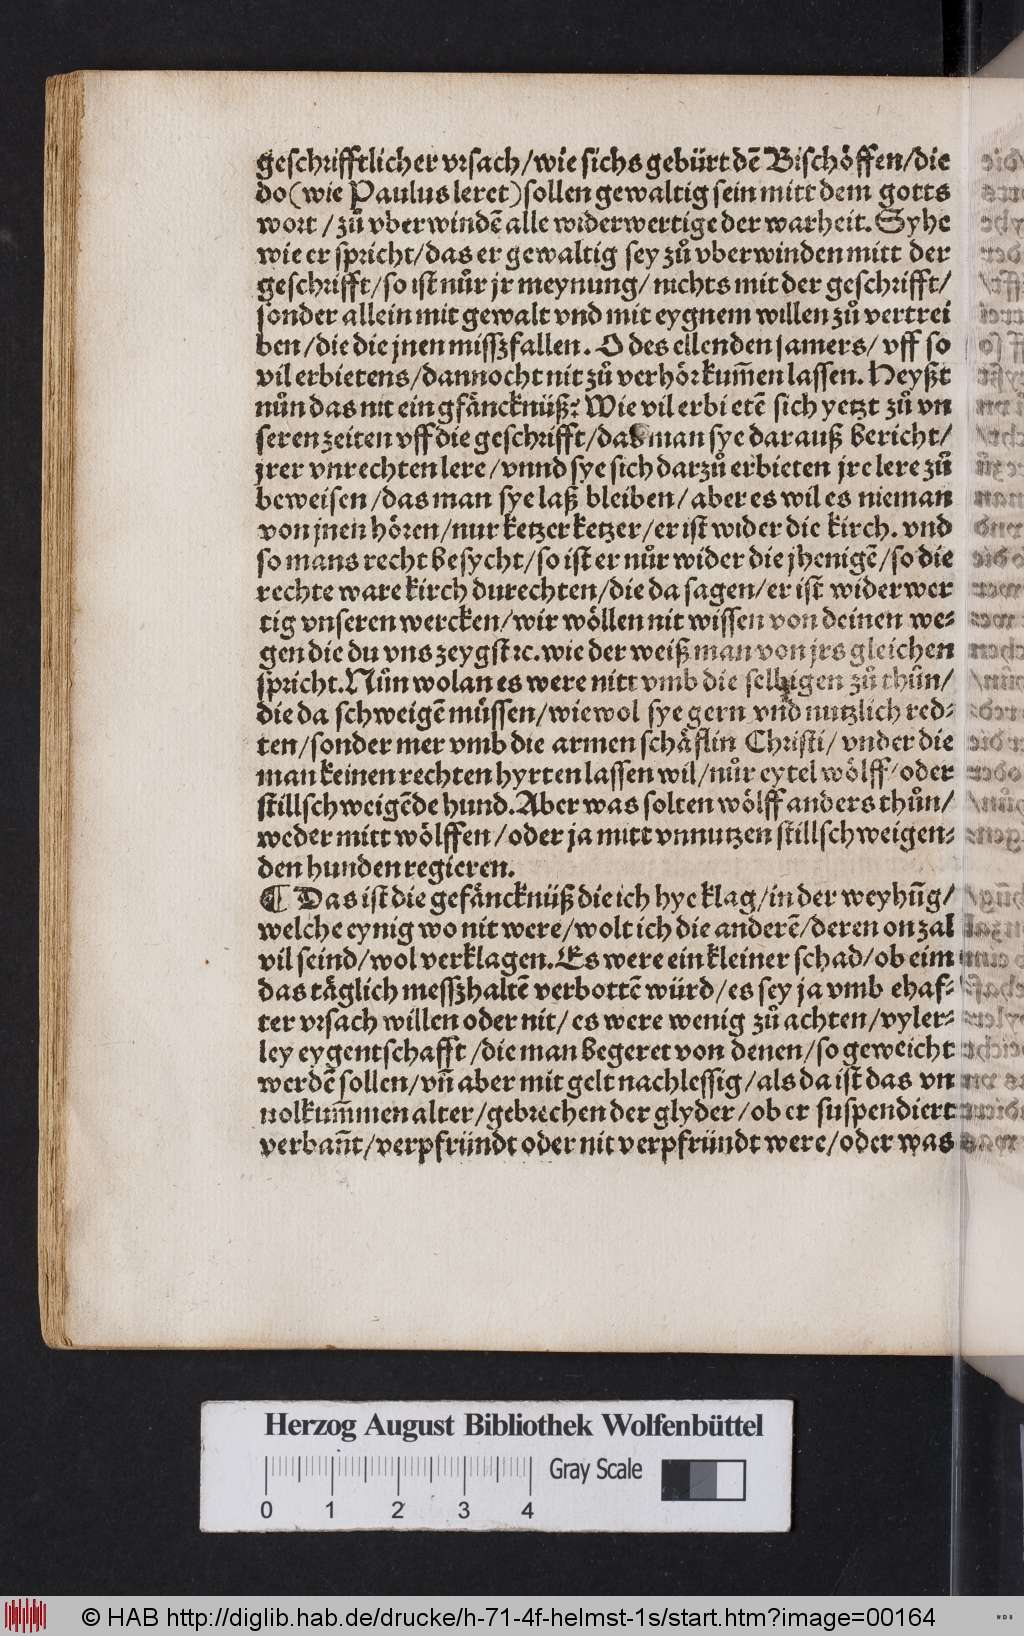 geschrifftlicher vrsach/wie sichs gebürt dē Bischöffen/die
do(wie Paulus leret)sollen gewaltig sein mitt dem gotts
wort/zů vberwindē alle widerwertige der warheit. Syhe
wie er spricht/das er gewaltig sey zů vberwinden mitt der
geschrifft/so ist nůr jr meynung/nichts mit der geschrifft/
sonder allein mit gewalt vnd mit eygnem willen zů vertrei
ben/die die jnen misszfallen. O des ellenden jamers/vff so
vil erbietens/dannocht nit zů verhör kum̄en lassen. Heyßt
nůn das nit ein gfäncknüß? Wie vil erbietē sich yetzt zů vn
seren zeiten vff die geschrifft/das man sye darauß bericht/
jrer vnrechten lere/vnnd sye sich darzů erbieten jre lere zů
beweisen/das man sye laß bleiben/aber es wil es nieman
von jnen hören/nur ketzer ketzer/er ist wider die kirch. vnd
so mans recht besycht/so ist er nůr wider die jhenigē/so die
rechte ware kirch durechten/die da sagen/er ist widerwer
tig vnseren wercken/wir wöllen nit wissen von deinen we-
gen die du vns zeygst ꝛc. wie der weiß man von jrs gleichen
spricht. Nůn wolan es were nitt vmb die selbigen zů thůn/
die da schweigē müssen/wiewol sye gern vnd nutzlich red-
ten/sonder mer vmb die armen schäflin Christi/vnder die
man keinen rechten hyrten lassen wil/nůr eytel wölff/oder
stillschweigēde hund. Aber was solten wölff anders thůn/
weder mitt wölffen/oder ja mitt vnnutzen stillschweigen-
den hunden regieren.
¶ Das ist die gefäncknüß die ich hye klag/in der weyhūg/
welche eynig wo nit were/wolt ich die anderē/deren on zal
vil seind/wol verklagen. Es were ein kleiner schad/ob eim
das täglich messzhaltē verbottē würd/es sey ja vmb ehaf-
ter vrsach willen oder nit/es were wenig zů achten/vyler-
ley eygentschafft/die man begeret von denen/so geweicht
werdē sollen/vn̄ aber mit gelt nachlessig/als da ist das vn
uolkum̄men alter/gebrechen der glyder/ob er suspendiert
verban̄t/verpfründt oder nit verpfründt were/oder was
Herzog August Bibliothek Wolfenbüttel
Gray Scale
0 1 2 3 4
© HAB http://diglib.hab.de/drucke/h-71-4f-helmst-1s/start.htm?image=00164